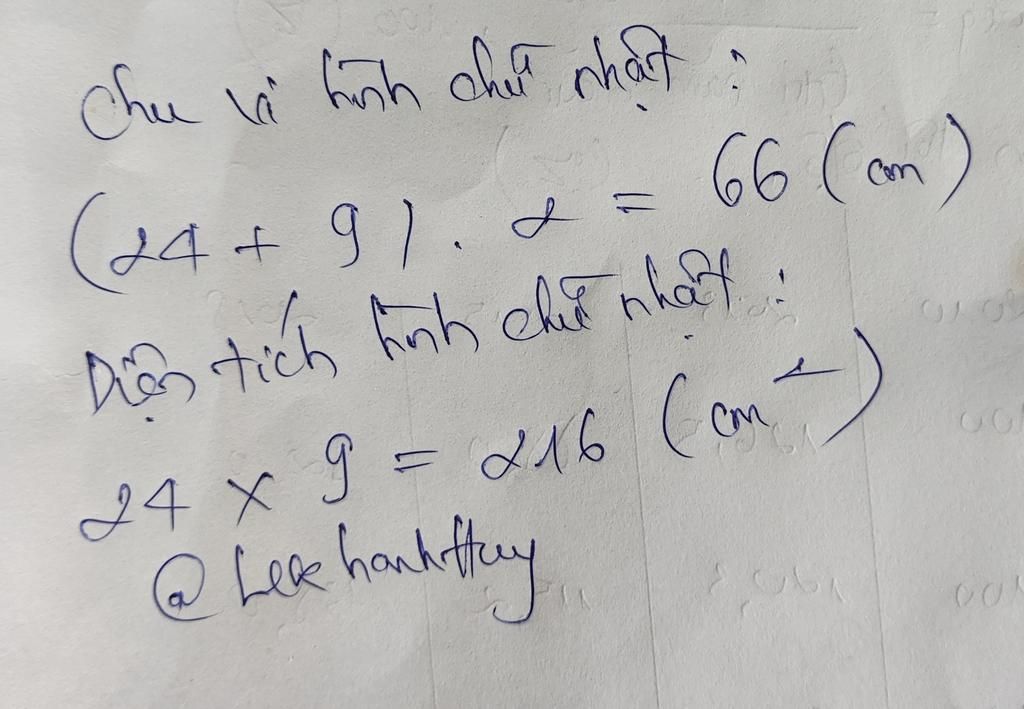 Chu vi hình chữ nhật :
(24 + 9) . 2 = 66 (cm)
Diện tích hình chữ nhật :
24 x 9 = 216 (cm²)